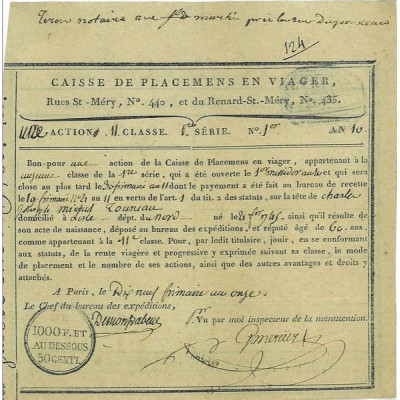 notaire rue
124
CAISSE DE PLACEMENS EN VIAGER,
Rues St-Méry, No. 440, et du Renard-St.-Méry, No. 435.
ACTION 11 CLASSE. 1re SÉRIE. No. 1er AN 10.
Bon pour une action de la Caisse de Placemens en viager, appartenant à la
onzieme classe de la 1re série, qui a été ouverte le 1er messidor an 10 et qui sera
close au plus tard le 30 frimaire an 11 dont le payement a été fait au bureau de recette
le 19 frimaire an 11 en vertu de l'art 1 du tit. 2 des statuts, sur la tête de charles
joseph
domicilié à dépt. du nord né le 1745 ainsi qu'il résulte de
son acte de naissance, déposé au bureau des expéditions, et réputé âgé de 60 ans,
comme appartenante à la 11e classe. Pour, par ledit titulaire, jouir, en se conformant
aux statuts, de la rente viagère et progressive y exprimée suivant sa classe, le mode
de placement et le nombre de ses actions, ainsi que des autres avantages et droits y
attachés.
A Paris, le Dix neuf frimaire an onze.
Le Chef du bureau des expéditions,
Vu par moi inspecteur de la manutention.
1000 F. ET
AU DESSOUS
50 CENTI.